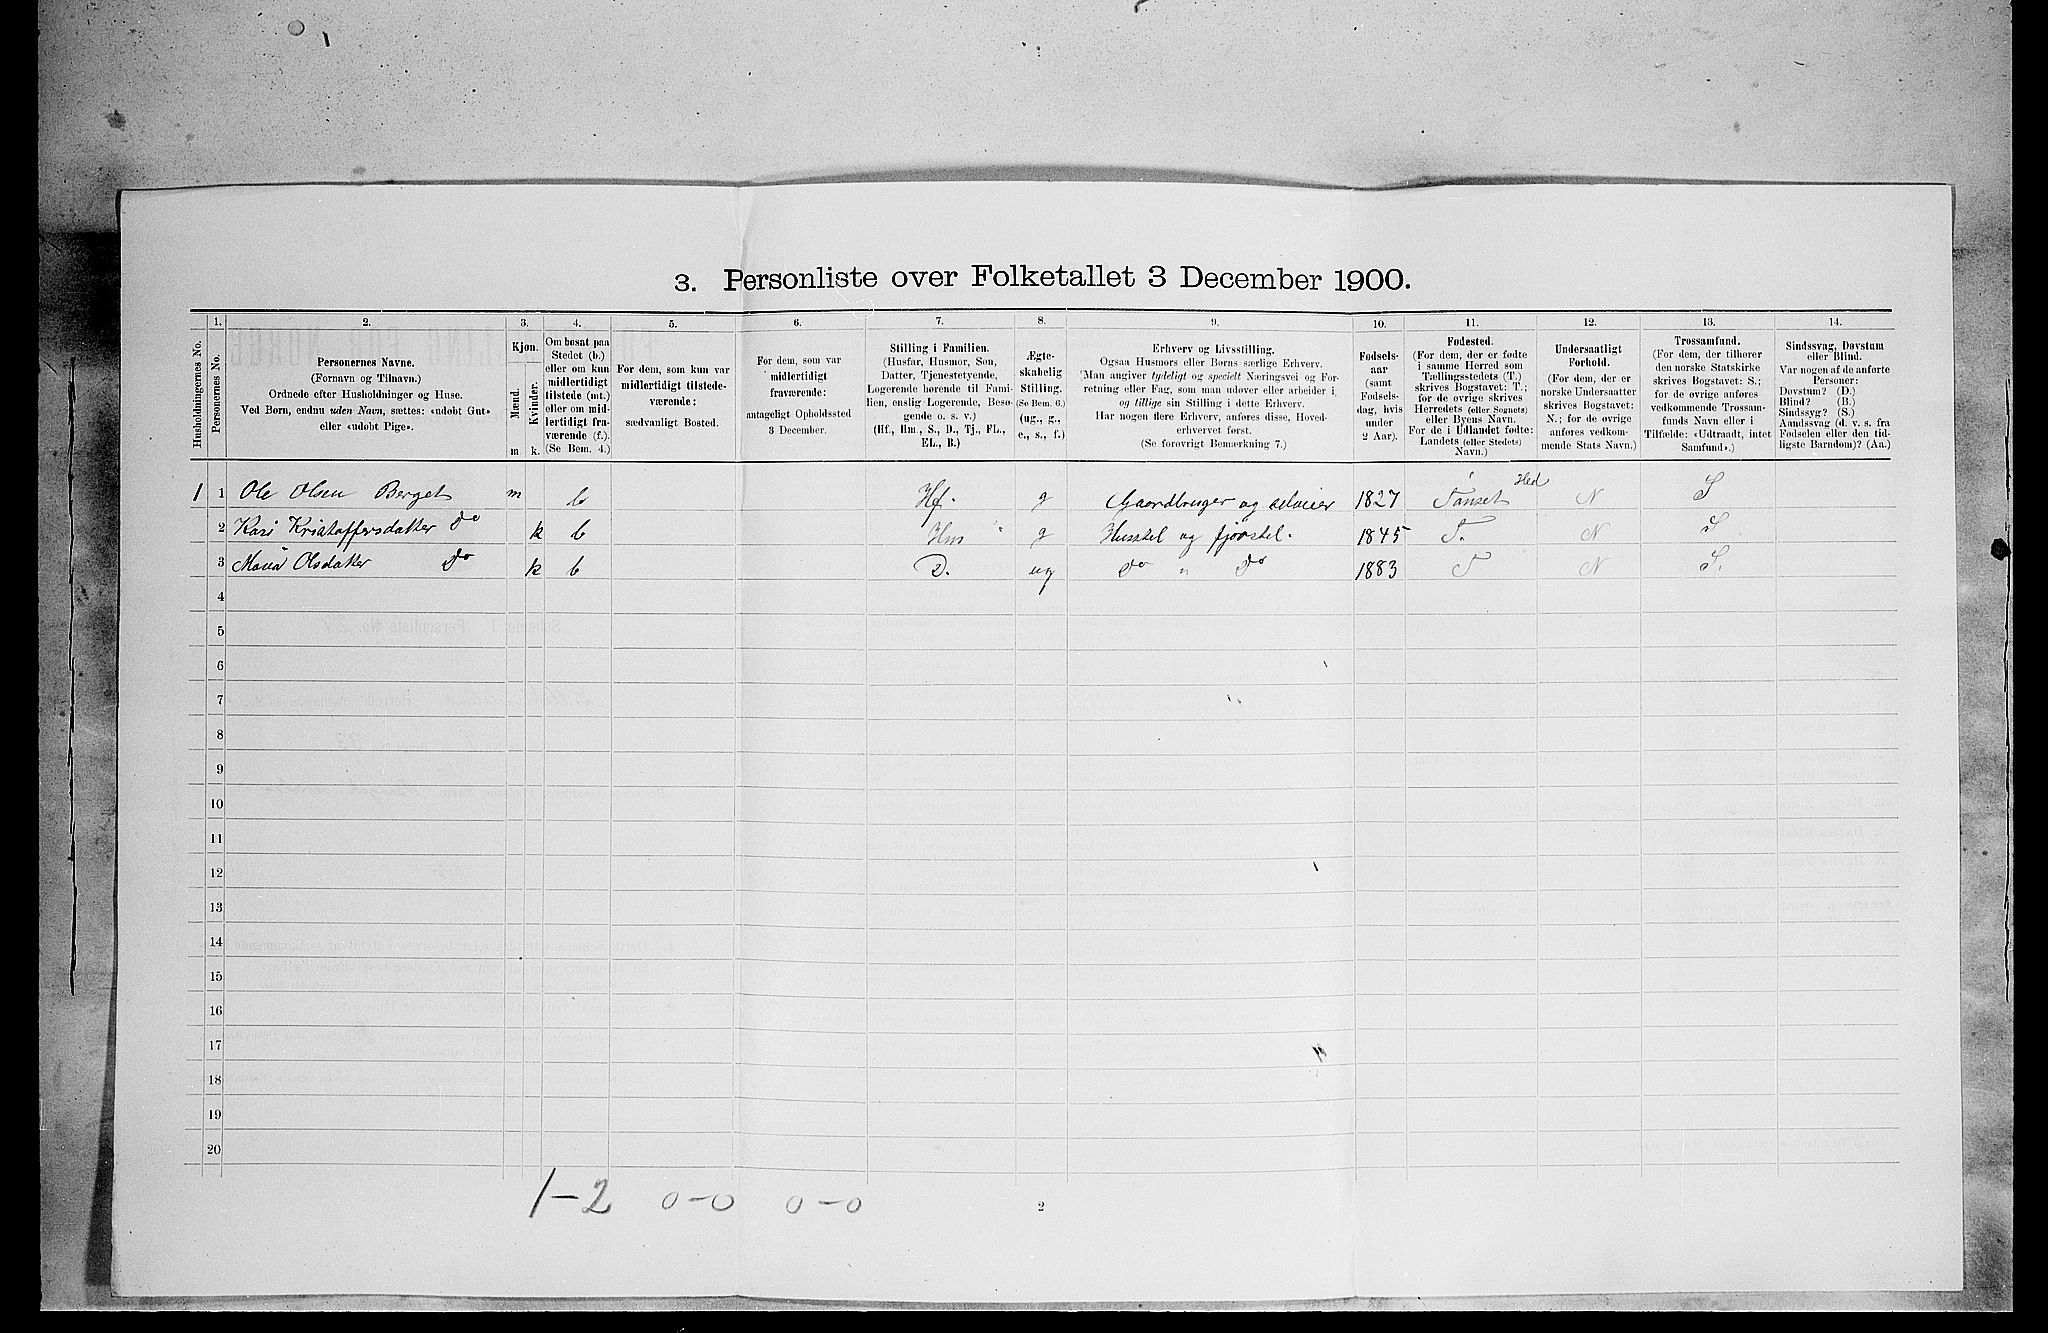 3. Personliste over Folketallet 3 December 1900.
1. 2. 3. 4. 5. 6. 7. 8. 9. 10. 11. 12. 13. 14.
Husholdningernes No.
Personernes No.
Personernes Navne.
(Fornavn og Tilnavn.)
Ordnede efter Husholdninger og Huse.
Ved Børn, endnu uden Navn, sættes: «udøbt Gut»
eller «udøbt Pige».
Kjøn.
Mænd.
Kvinder.
m k.
Om bosat paa
Stedet (b.)
eller om kun
midlertidigt
tilstede (mt.)
eller om mid-
lertidigt fra-
værende (f.).
(Se Bem. 4.)
For dem, som kun var
midlertidigt tilstede-
værende:
sædvanligt Bosted.
For dem, som var
midlertidigt
fraværende:
antageligt Opholdssted
3 December.
Stilling i Familien.
(Husfar, Husmor, Søn,
Datter, Tjenestetyende,
Logerende hørende til Fami-
lien, enslig Logerende, Besø-
gende o. s. v.)
(Hf., Hm., S., D., Tj., FL.,
EL., B.)
Ægte-
skabelig
Stilling.
(Se Bem. 6.)
(ug., g.,
e., s., f.)
Erhverv og Livsstilling.
Ogsaa Husmors eller Børns særlige Erhverv.
Man angiver tydeligt og specielt Næringsvei og For-
retning eller Fag, som man udøver eller arbeider i,
og tillige sin Stilling i dette Erhverv.
Har nogen flere Erhverv, anføres disse, Hoved-
erhvervet først.
(Se forøvrigt Bemærkning 7.)
Fødsels-
aar
(samt
Fødsels-
dag, hvis
under
2 Aar).
Fødested.
(For dem, der er fødte
i samme Herred som
Tællingsstedets (T.)
skrives Bogstavet: T.;
for de øvrige skrives
Herredets (eller Sognets)
eller Byens Navn.
For de i Udlandet fødte:
Landets (eller Stedets)
Navn.)
Undersaatligt
Forhold.
(For dem, der er
norske Undersaatter
skrives Bogstavet:
N.; for de øvrige
anføres vedkom-
mende Stats Navn.)
Trossamfund.
(For dem, der tilhører
den norske Statskirke
skrives Bogstavet: S.;
for de øvrige anføres
vedkommende Trossam-
funds Navn eller i
Tilfælde: «Udtraadt, intet
Samfund».)
Sindssvag, Døvstum
eller Blind.
Var nogen af de anførte
Personer:
Døvstum? (D.)
Blind? (B.)
Sindssyg? (S.)
Aandssvag (d. v. s. fra
Fødselen eller den tid-
ligste Barndom)? (Aa.)
1 1 Ole Olsen Berget m b Hf. g Gaardbruger og selveier 1827 Tønset Hed N S
2 Kari Kristoffersdatter Do k b Hus g Husstel og fjøsstel. 1845 T. N S
3 Maria Olsdatter Do k b D. ug Do " Do 1883 T N S.
4
5
6
7
8
9
10
11
12
13
14
15
16
17
18
19
20
1-2 0-0 0-0
2